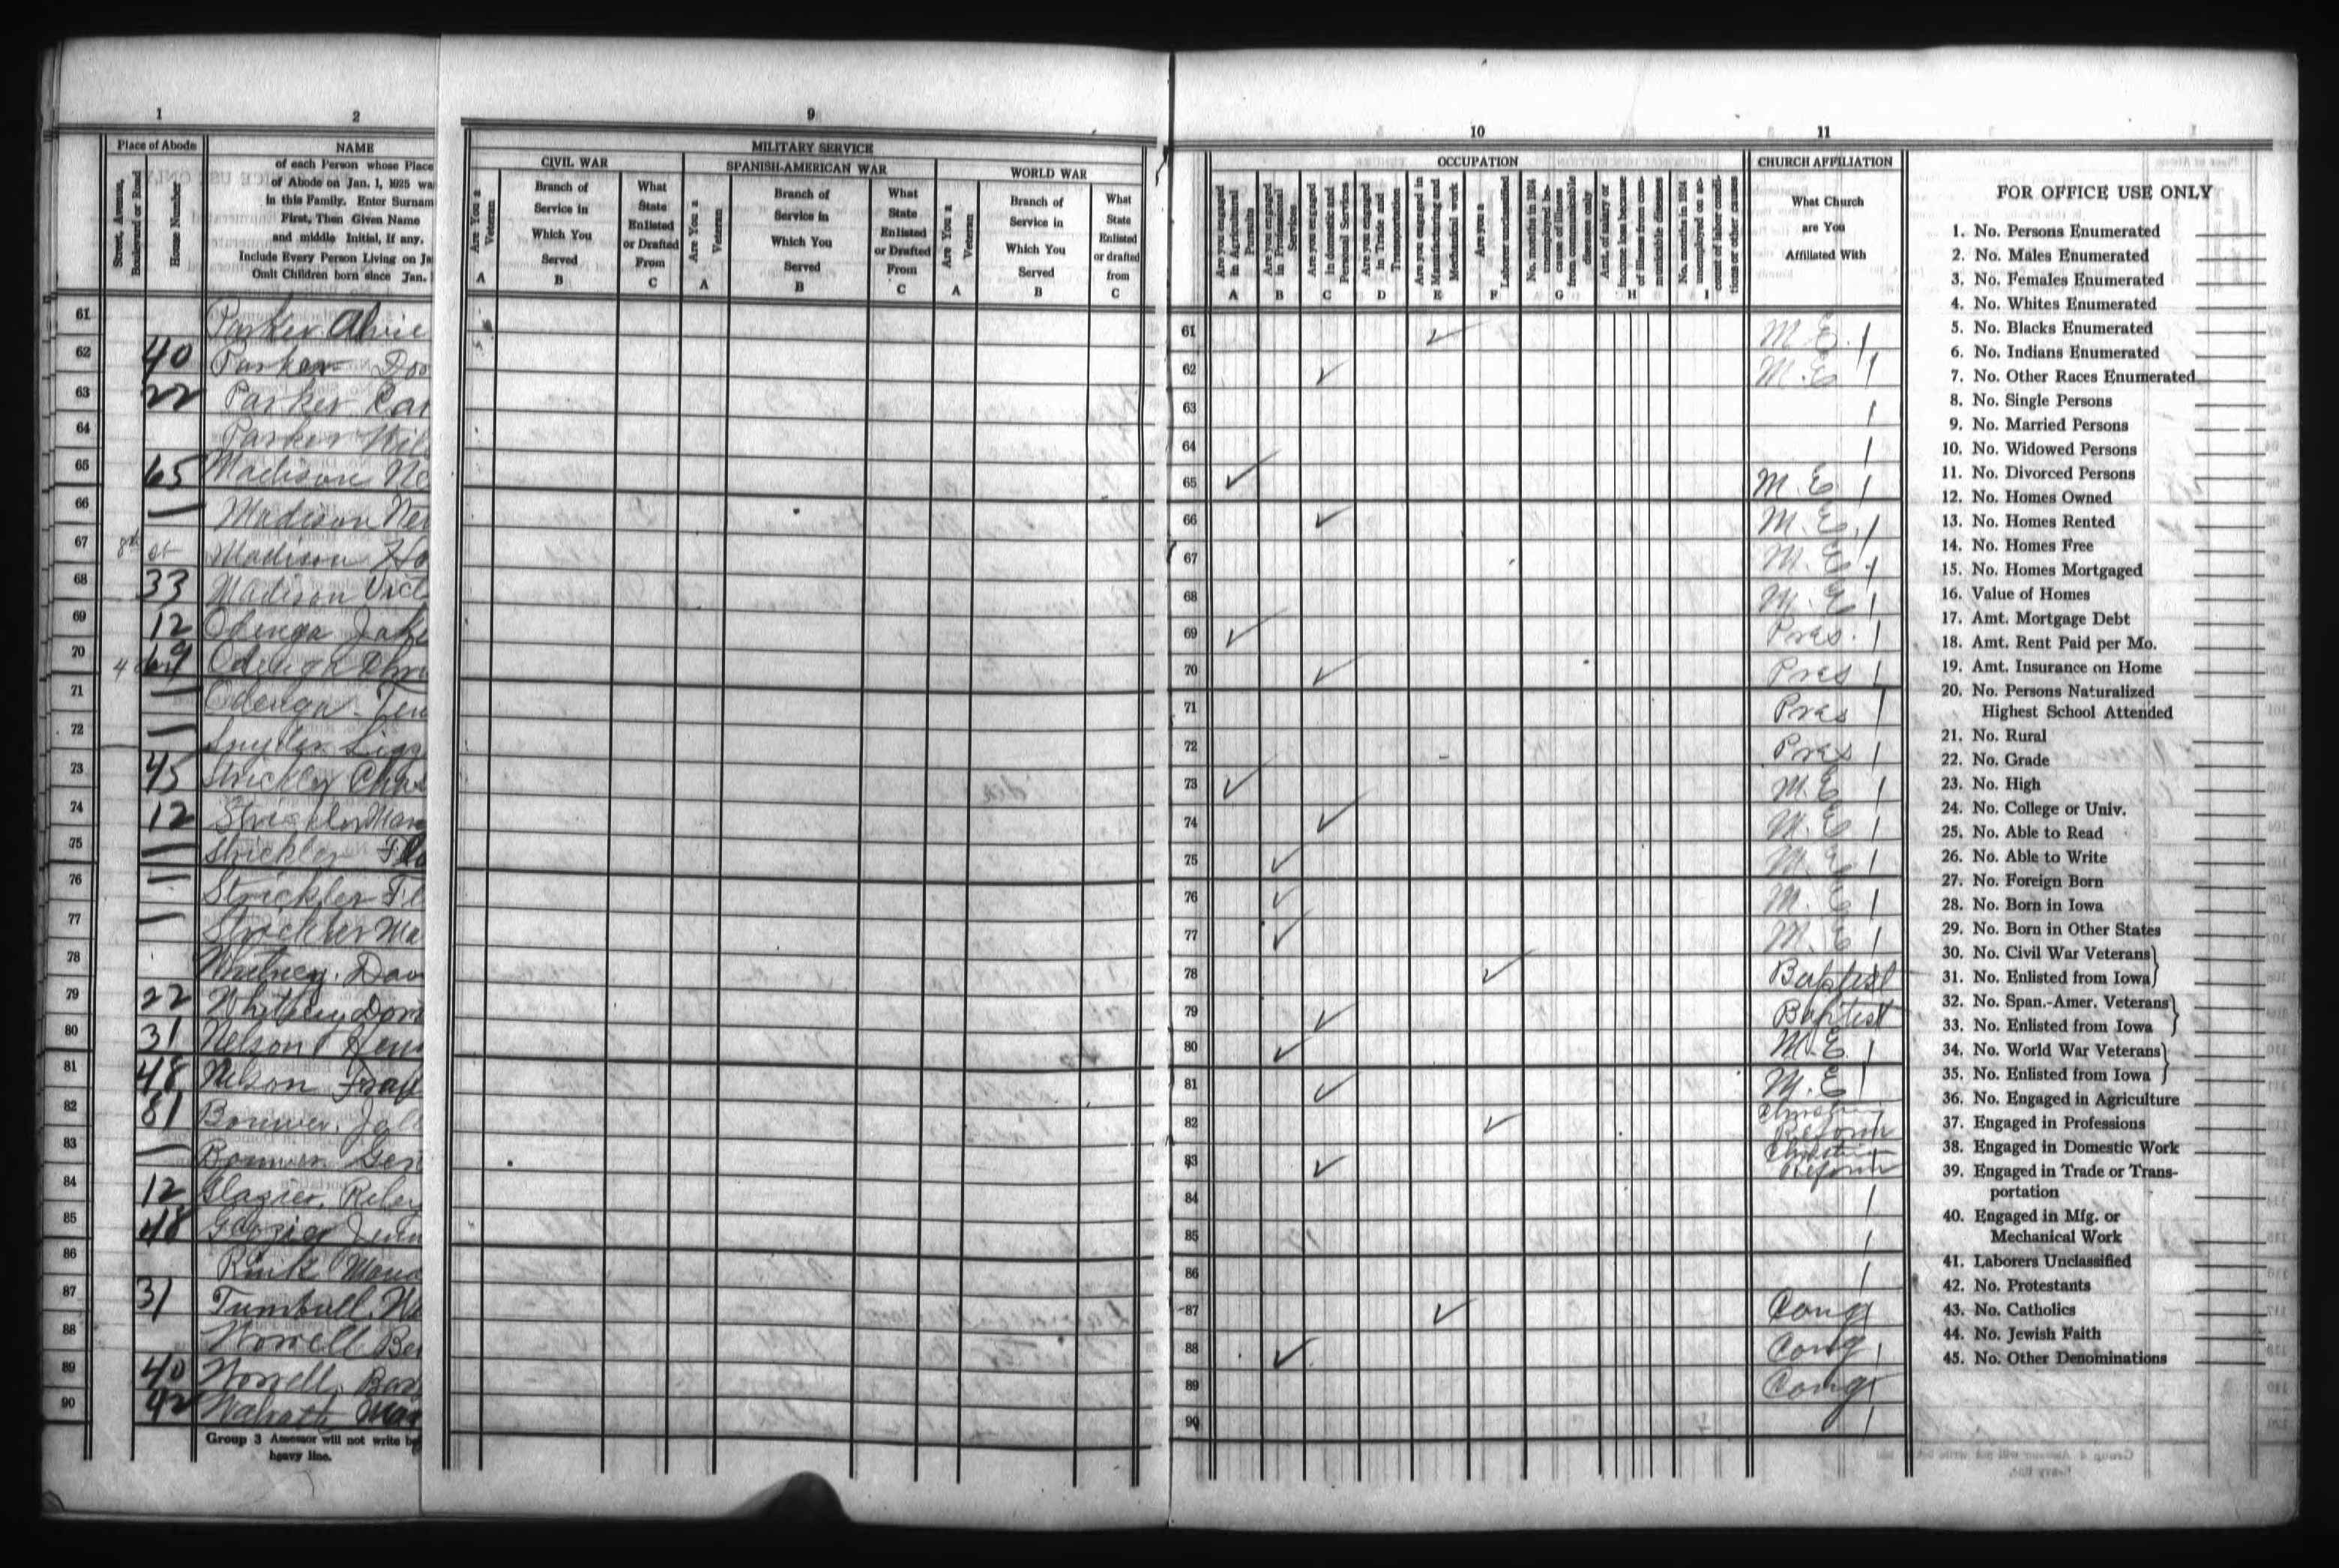 1
2
Place of Abode
Street, Avenue, Boulevard or Road
House Number
NAME
of each Person whose Place
of Abode on Jan. 1, 1925 wa
in this Family. Enter Surnam
First, Then Given Name
and middle Initial, if any.
Include Every Person Living on Ja
Omit Children born since Jan.
61 Parker
62 40 Parker
63 22 Parker
64 Parker
65 65 Madison Ne
66 — Madison Ne
67 8th st Madison
68 33 Madison Vict
69 12 Odenga Jake
70
71 —
72 — Snyder
73 45 Strickler Chas
74 12 Strickler
75 — Strickler Flo
76 — Strickler Fl
77 — Strickler Ma
78 Whitney. Dav
79 22 Whitney
80 31 Nelson
81 48 Nelson
82 81
83 —
84 12 Glazier, Riley
85 48 Jenn
86 Rink
87 31 Turnbull
88 Worrell Be
89 40 Worrell
90 92
Group 3 Assessor will not write be
heavy line.
9
MILITARY SERVICE
CIVIL WAR
SPANISH-AMERICAN WAR
WORLD WAR
Are You a Veteran
A
Branch of
Service in
Which You
Served
B
What
State
Enlisted
or Drafted
From
C
Are You a Veteran
A
Branch of
Service in
Which You
Served
B
What
State
Enlisted
or Drafted
From
C
Are You a Veteran
A
Branch of
Service in
Which You
Served
B
What
State
Enlisted
or drafted
from
C
10
OCCUPATION
Are you engaged in Agricultural Pursuits
A
Are you engaged in Professional Services
B
Are you engaged in domestic and Personal Services
C
Are you engaged in Trade and Transportation
D
Are you engaged in Manufacturing and Mechanical work
E
Are you a Laborer unclassified
F
No. months in 1924 unemployed because of illness from communicable diseases only
G
Amt. of salary or income loss because of illness from communicable diseases
H
No. months in 1924 unemployed on account of labor conditions or other causes
I
11
CHURCH AFFILIATION
What Church
are You
Affiliated With
61 ✓ M. E. 1
62 ✓ M. E 1
63 1
64 1
65 ✓ M. E. 1
66 ✓ M. E. 1
67 M. E. 1
68 M. E 1
69 ✓ Pres. 1
70 ✓ Pres 1
71 Pres 1
72 Pres 1
73 ✓ M. E 1
74 ✓ M. E 1
75 ✓ M. E 1
76 ✓ M. E 1
77 ✓ M. E 1
78 ✓ Baptist
79 ✓ Baptist
80 ✓ M. E. 1
81 ✓ M. E 1
82 ✓ Christian
Reform
83 ✓ Christian
Reform
84 1
85 1
86 1
87 ✓ Cong 1
88 ✓ Cong. 1
89 Cong 1
90 1
FOR OFFICE USE ONLY
1. No. Persons Enumerated
2. No. Males Enumerated
3. No. Females Enumerated
4. No. Whites Enumerated
5. No. Blacks Enumerated
6. No. Indians Enumerated
7. No. Other Races Enumerated
8. No. Single Persons
9. No. Married Persons
10. No. Widowed Persons
11. No. Divorced Persons
12. No. Homes Owned
13. No. Homes Rented
14. No. Homes Free
15. No. Homes Mortgaged
16. Value of Homes
17. Amt. Mortgage Debt
18. Amt. Rent Paid per Mo.
19. Amt. Insurance on Home
20. No. Persons Naturalized
Highest School Attended
21. No. Rural
22. No. Grade
23. No. High
24. No. College or Univ.
25. No. Able to Read
26. No. Able to Write
27. No. Foreign Born
28. No. Born in Iowa
29. No. Born in Other States
30. No. Civil War Veterans
31. No. Enlisted from Iowa
32. No. Span.-Amer. Veterans
33. No. Enlisted from Iowa
34. No. World War Veterans
35. No. Enlisted from Iowa
36. No. Engaged in Agriculture
37. Engaged in Professions
38. Engaged in Domestic Work
39. Engaged in Trade or Trans-
portation
40. Engaged in Mfg. or
Mechanical Work
41. Laborers Unclassified
42. No. Protestants
43. No. Catholics
44. No. Jewish Faith
45. No. Other Denominations